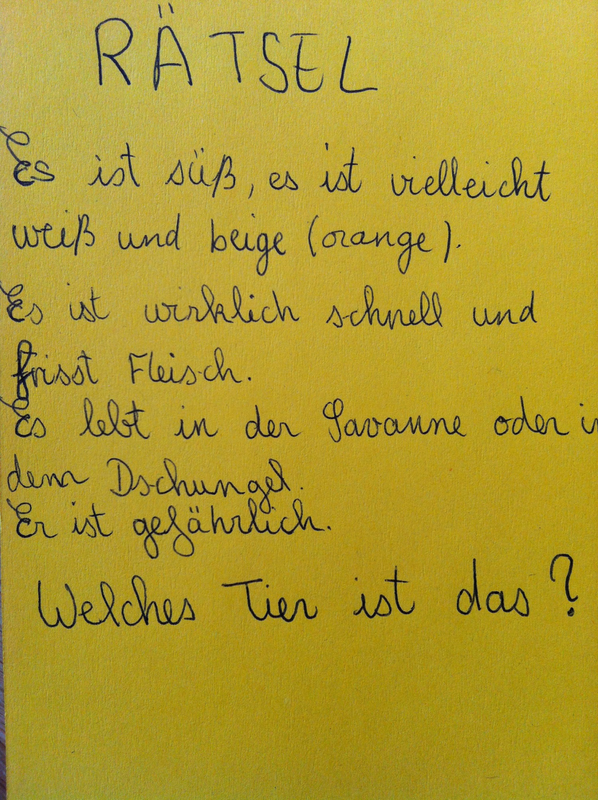 RÄTSEL
Es ist süß, es ist vielleicht
weiß und beige (orange).
Es ist wirklich schnell und
frisst Fleisch.
Es lebt in der Savanne oder in
dem Dschungel.
Er ist gefährlich.
Welches Tier ist das?